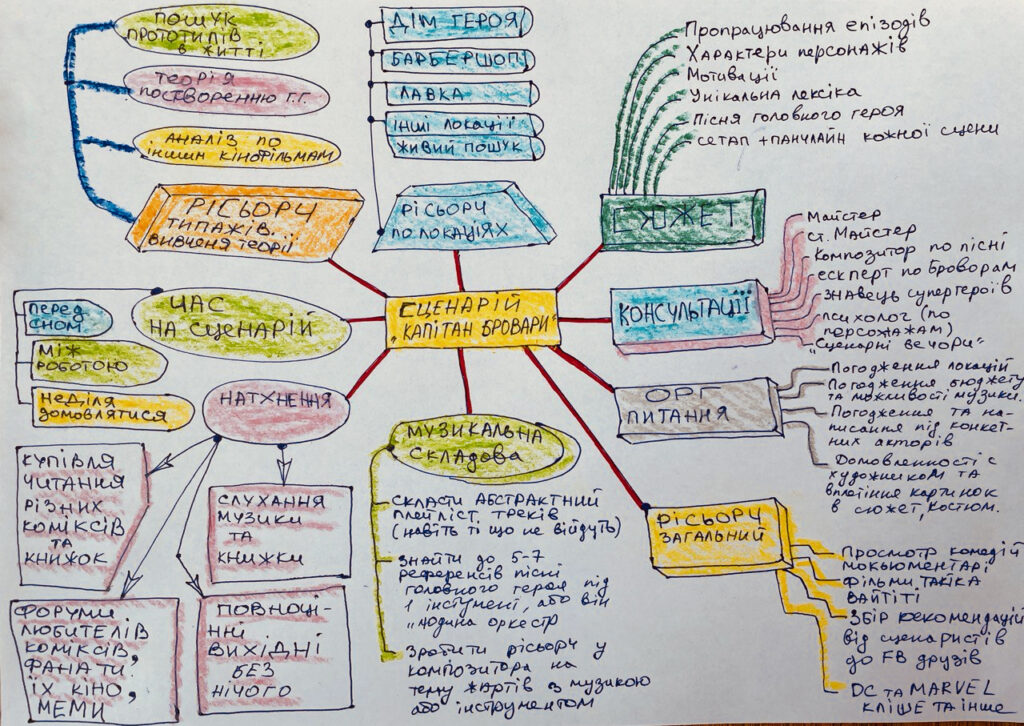 ПОШУК
ПРОТОТИПІВ
В ЖИТТІ
ТЕОРІЯ
ПОСТВОРЕННЮ Г.Г.
АНАЛІЗ ПО
ІНШИМ КІНОФІЛЬМАМ
РІСЬОРЧ
ТИПАЖІВ.
ВИВЧЕНЯ ТЕОРІЇ
ДІМ ГЕРОЯ
БАРБЕРШОП
ЛАВКА
ІНШІ ЛОКАЦІЇ
ЖИВИЙ ПОШУК
РІСЬОРЧ
ПО ЛОКАЦІЯХ
Пропрацювання епізодів
Характери персонажів
Мотивації
Унікальна лексіка
Пісня головного героя
сетап + панчлайн кожної сцени
СЮЖЕТ
Майстер
ст. Майстер
Композитор по пісні
ескперт по Броворам
Знавець супергероїв
психолог (по
персонажам)
„Сценарні вечори"
КОНСУЛЬТАЦІЇ
СЦЕНАРІЙ
"КАПІТАН БРОВАРИ"
ЧАС
НА СЦЕНАРІЙ
ПЕРЕД
СНОМ
МІЖ
РОБОТОЮ
НЕДІЛЯ
ДОМОВЛЯТИСЯ
НАТХНЕННЯ
КУПІВЛЯ
ЧИТАННЯ
РІЗНИХ
КОМІКСІВ
ТА
КНИЖОК
СЛУХАННЯ
МУЗИКИ
ТА
КНИЖКИ
ФОРУМИ
ЛЮБИТЕЛІВ
КОМІКСІВ,
ФАНАТИ.
ЇХ КІНО,
МЕМИ
ПОВНОЦІ-
ННІ
ВИХІДНІ
БЕЗ
НІЧОГО
МУЗИКАЛЬНА
СКЛАДОВА
СКЛАСТИ АБСТРАКТНИЙ
ПЛЕЙЛІСТ ТРЕКІВ
(навіть ті що не війдуть)
Знайти до 5-7
референсів пісні
головного героя під
1 інстумент, або він
„людина оркестр
Зробити рісьорч у
композитора на
тему жартів з музикою
або інструментом
ОРГ
ПИТАННЯ
Погодження локацій
Погодження бюджету
та можливості музики.
Погодження та на-
писання під конкет-
них акторів
Домовленності с
художником та
вплетіння картинок
в сюжет, костюм.
РІСЬОРЧ
ЗАГАЛЬНИЙ
Просмотр комедій
мокьюментарі
Фільми Тайка
Вайтіті
Збір рекомендацій
від сценаристів
до FB друзів
DC та MARVEL
КЛІШЕ ТА ІНШЕ